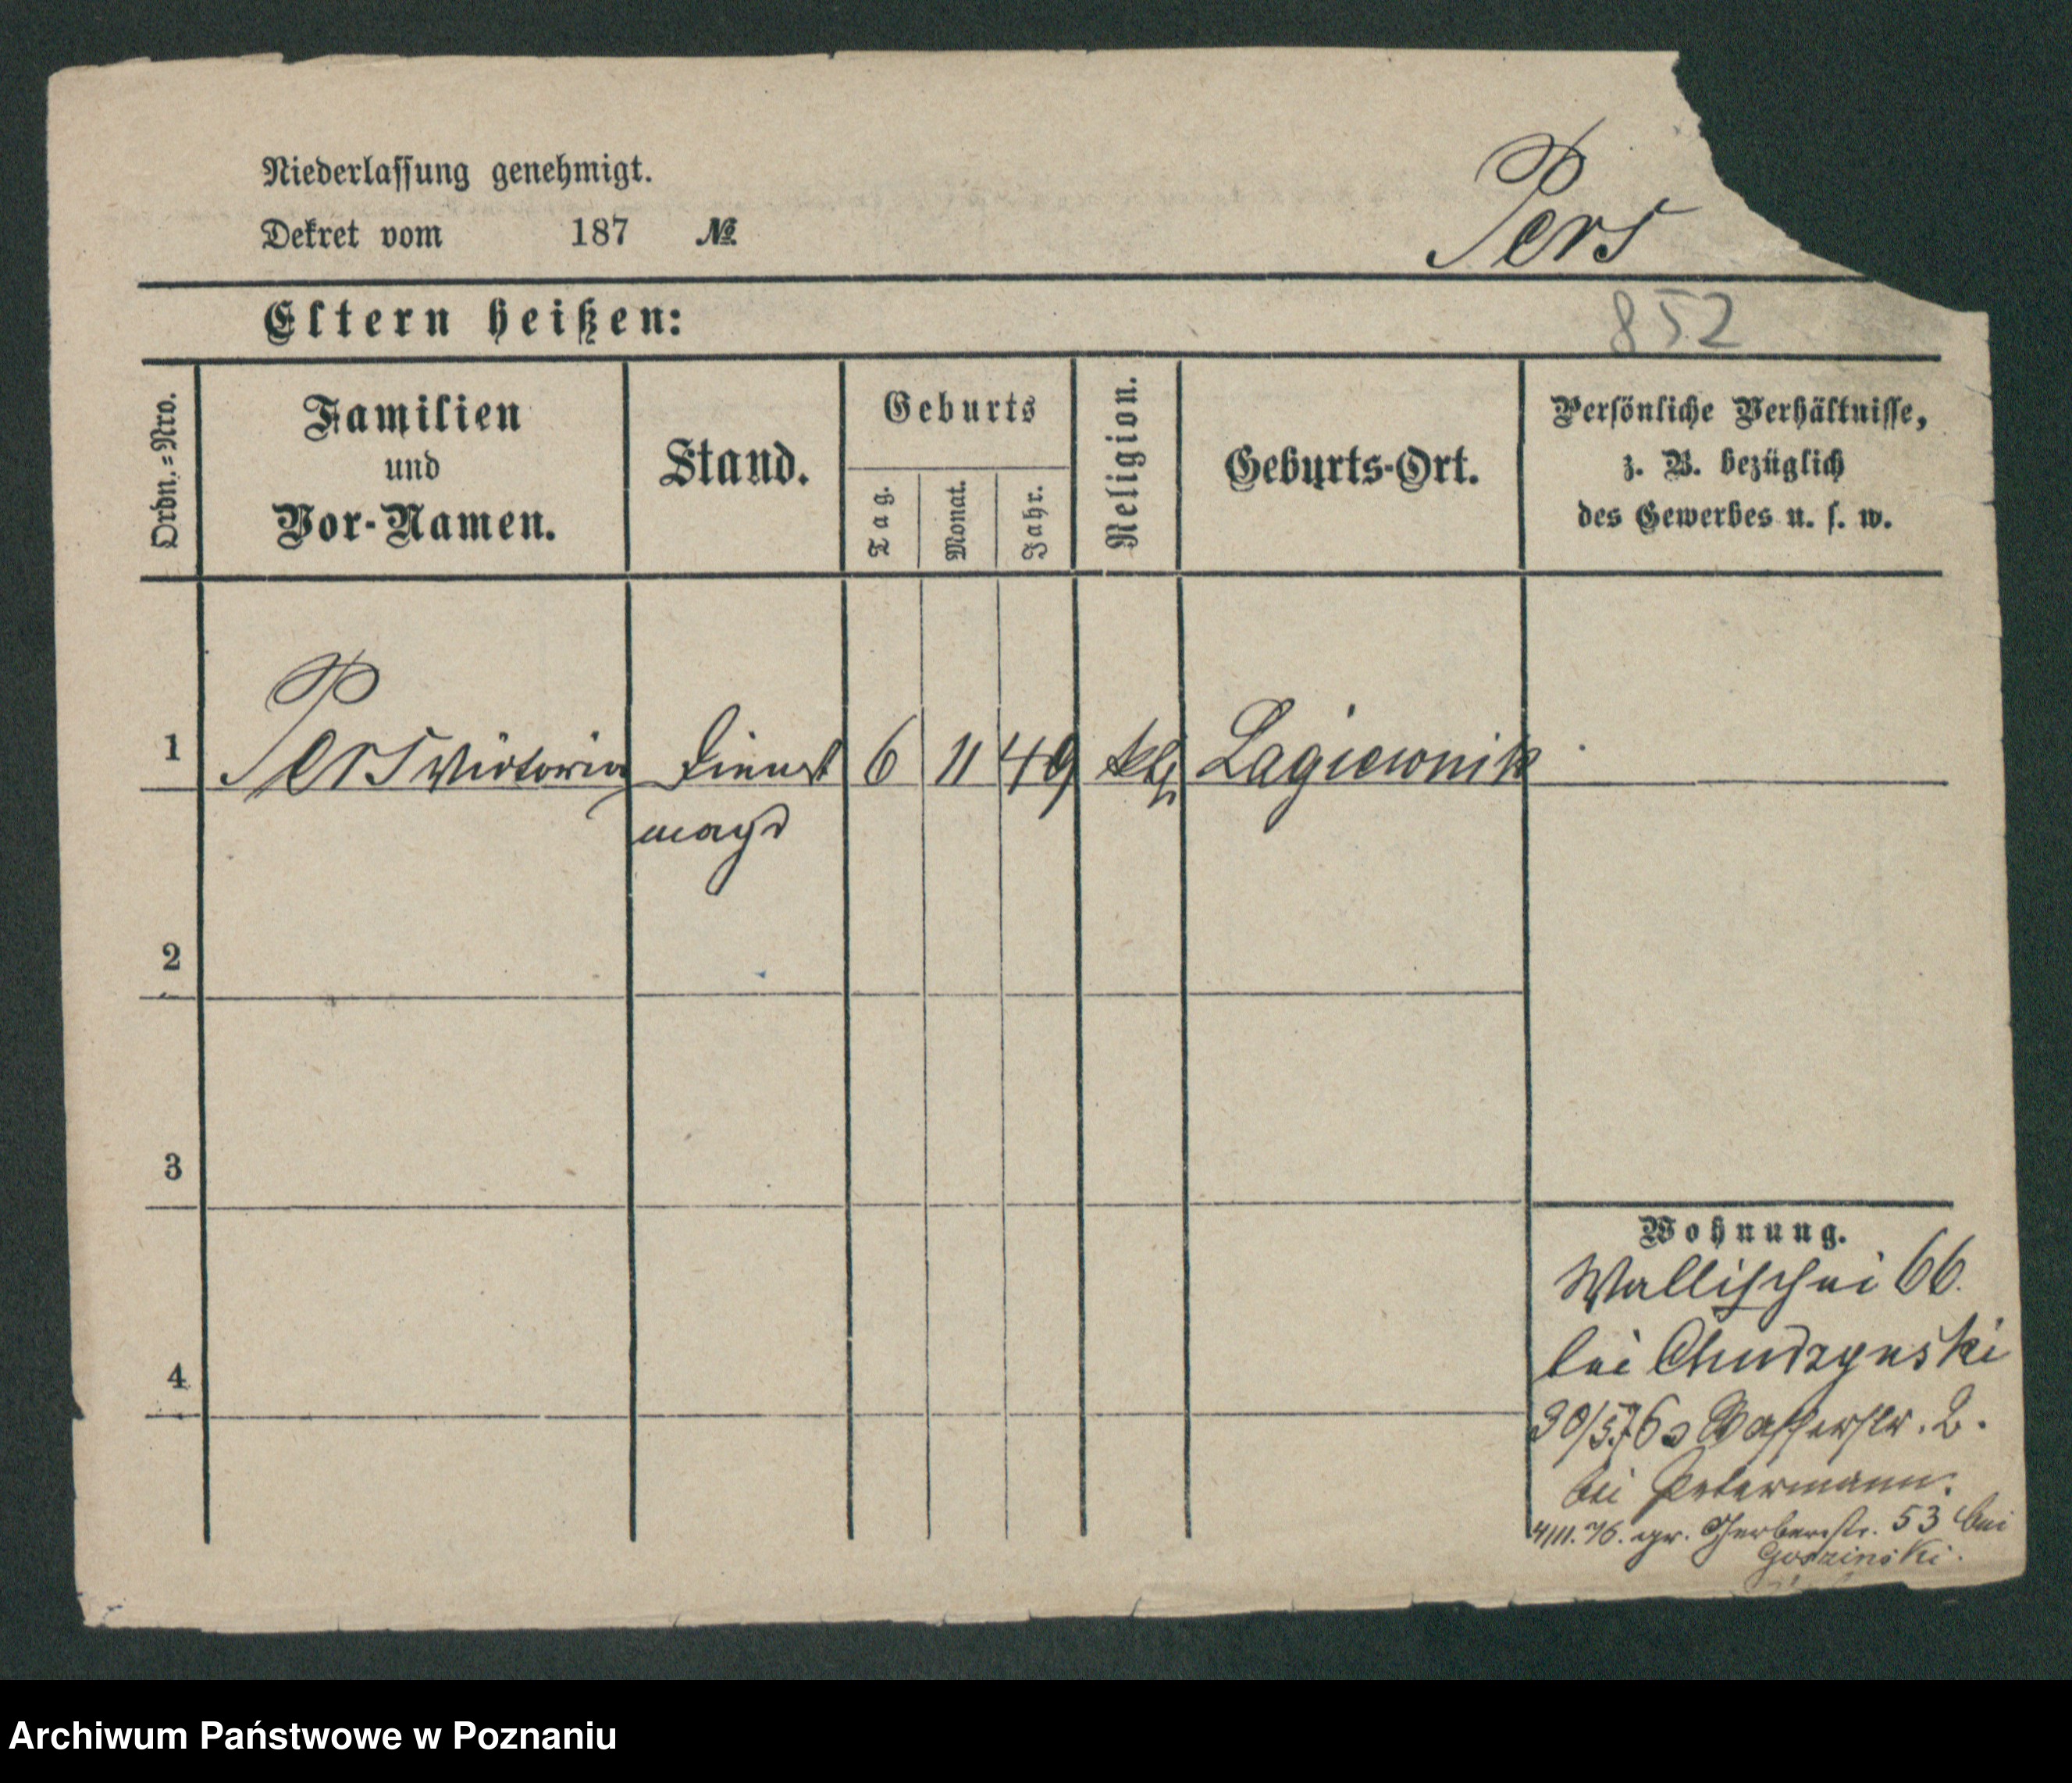 Niederlassung genehmigt.
Dekret vom 187 №
Pers
Eltern heißen:
852
Ordn.-Nro.
Familien
und
Vor-Namen.
Stand.
Geburts
Tag.
Monat.
Jahr.
Religion.
Geburts-Ort.
Persönliche Verhältnisse,
z. B. bezüglich
des Gewerbes u. s. w.
1 Pers Victoria Dienst 6 11 49 kth Lagiewnik
magd
2
3
4
Wohnung.
Wallischei 66.
bei Chudzynski
30/5.76 Wasserstr. 2.
bei Petermann.
4/11.76. gr. Gerberstr. 53 bei
Goszinski.
Archiwum Państwowe w Poznaniu